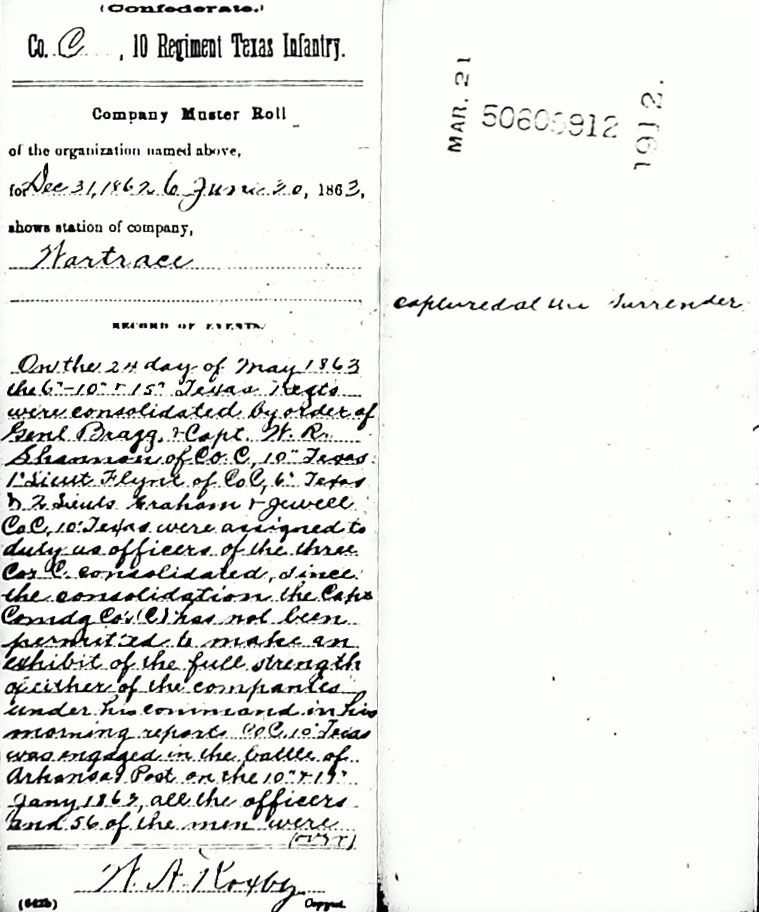 (Confederate.)
Co. C , 10 Regiment Texas Infantry.
Company Muster Roll
of the organization named above,
for Dec 31, 1862 to June 30, 1863,
shows station of company,
Wartrace
RECORD OF EVENTS.
On the 24 day of May 1863
the 6" - 10" & 15" Texas Regts
were consolidated by order of
Genl Bragg, & Capt. W. R.
Shannon of Co. C, 10" Texas
1" Lieut Flynt of Co C, 6" Texas
& 2 Lieuts Graham & Jewell
Co C, 10" Texas were assigned to
duty as officers of the three
Cos C. consolidated, since
the consolidation the Capt
Comdg Co's (C) has not been
permitted to make an
exhibit of the full strength
of either of the companies
under his command in his
morning reports Co C, 10" Texas
was engaged in the battle of
Arkansas Post on the 10" & 11"
Jany 1863, all the officers
and 56 of the men were
(over)
W. A. Roxby
Copyist.
MAR. 21
1912.
captured at the surrender